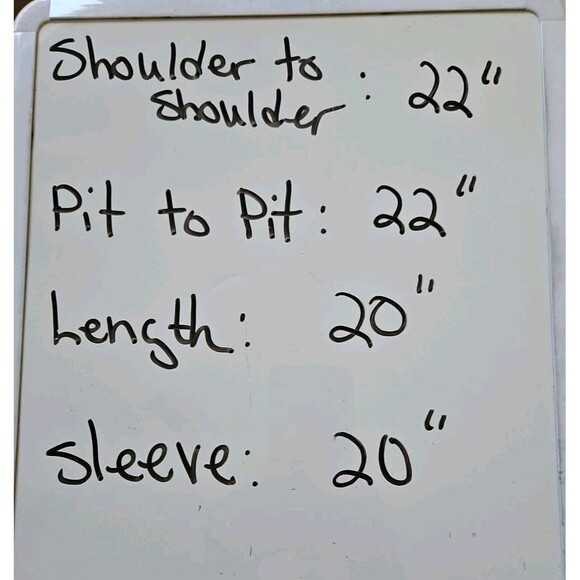 Shoulder to
Shoulder : 22"
Pit to Pit: 22"
Length: 20"
Sleeve: 20"